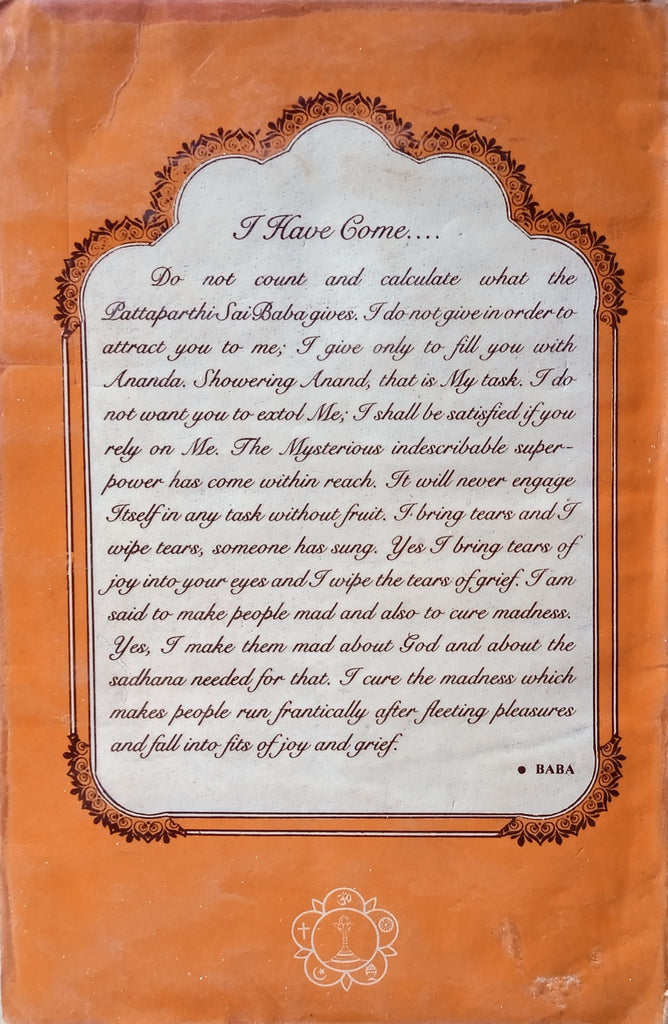 I Have Come....
Do not count and calculate what the
Pattaparthi Sai Baba gives. I do not give in order to
attract you to me; I give only to fill you with
Ananda. Showering Anand, that is My task. I do
not want you to extol Me; I shall be satisfied if you
rely on Me. The Mysterious indescribable super-
power has come within reach. It will never engage
Itself in any task without fruit. I bring tears and I
wipe tears, someone has sung. Yes I bring tears of
joy into your eyes and I wipe the tears of grief. I am
said to make people mad and also to cure madness.
Yes, I make them mad about God and about the
sadhana needed for that. I cure the madness which
makes people run frantically after fleeting pleasures
and fall into fits of joy and grief.
● BABA
ॐ